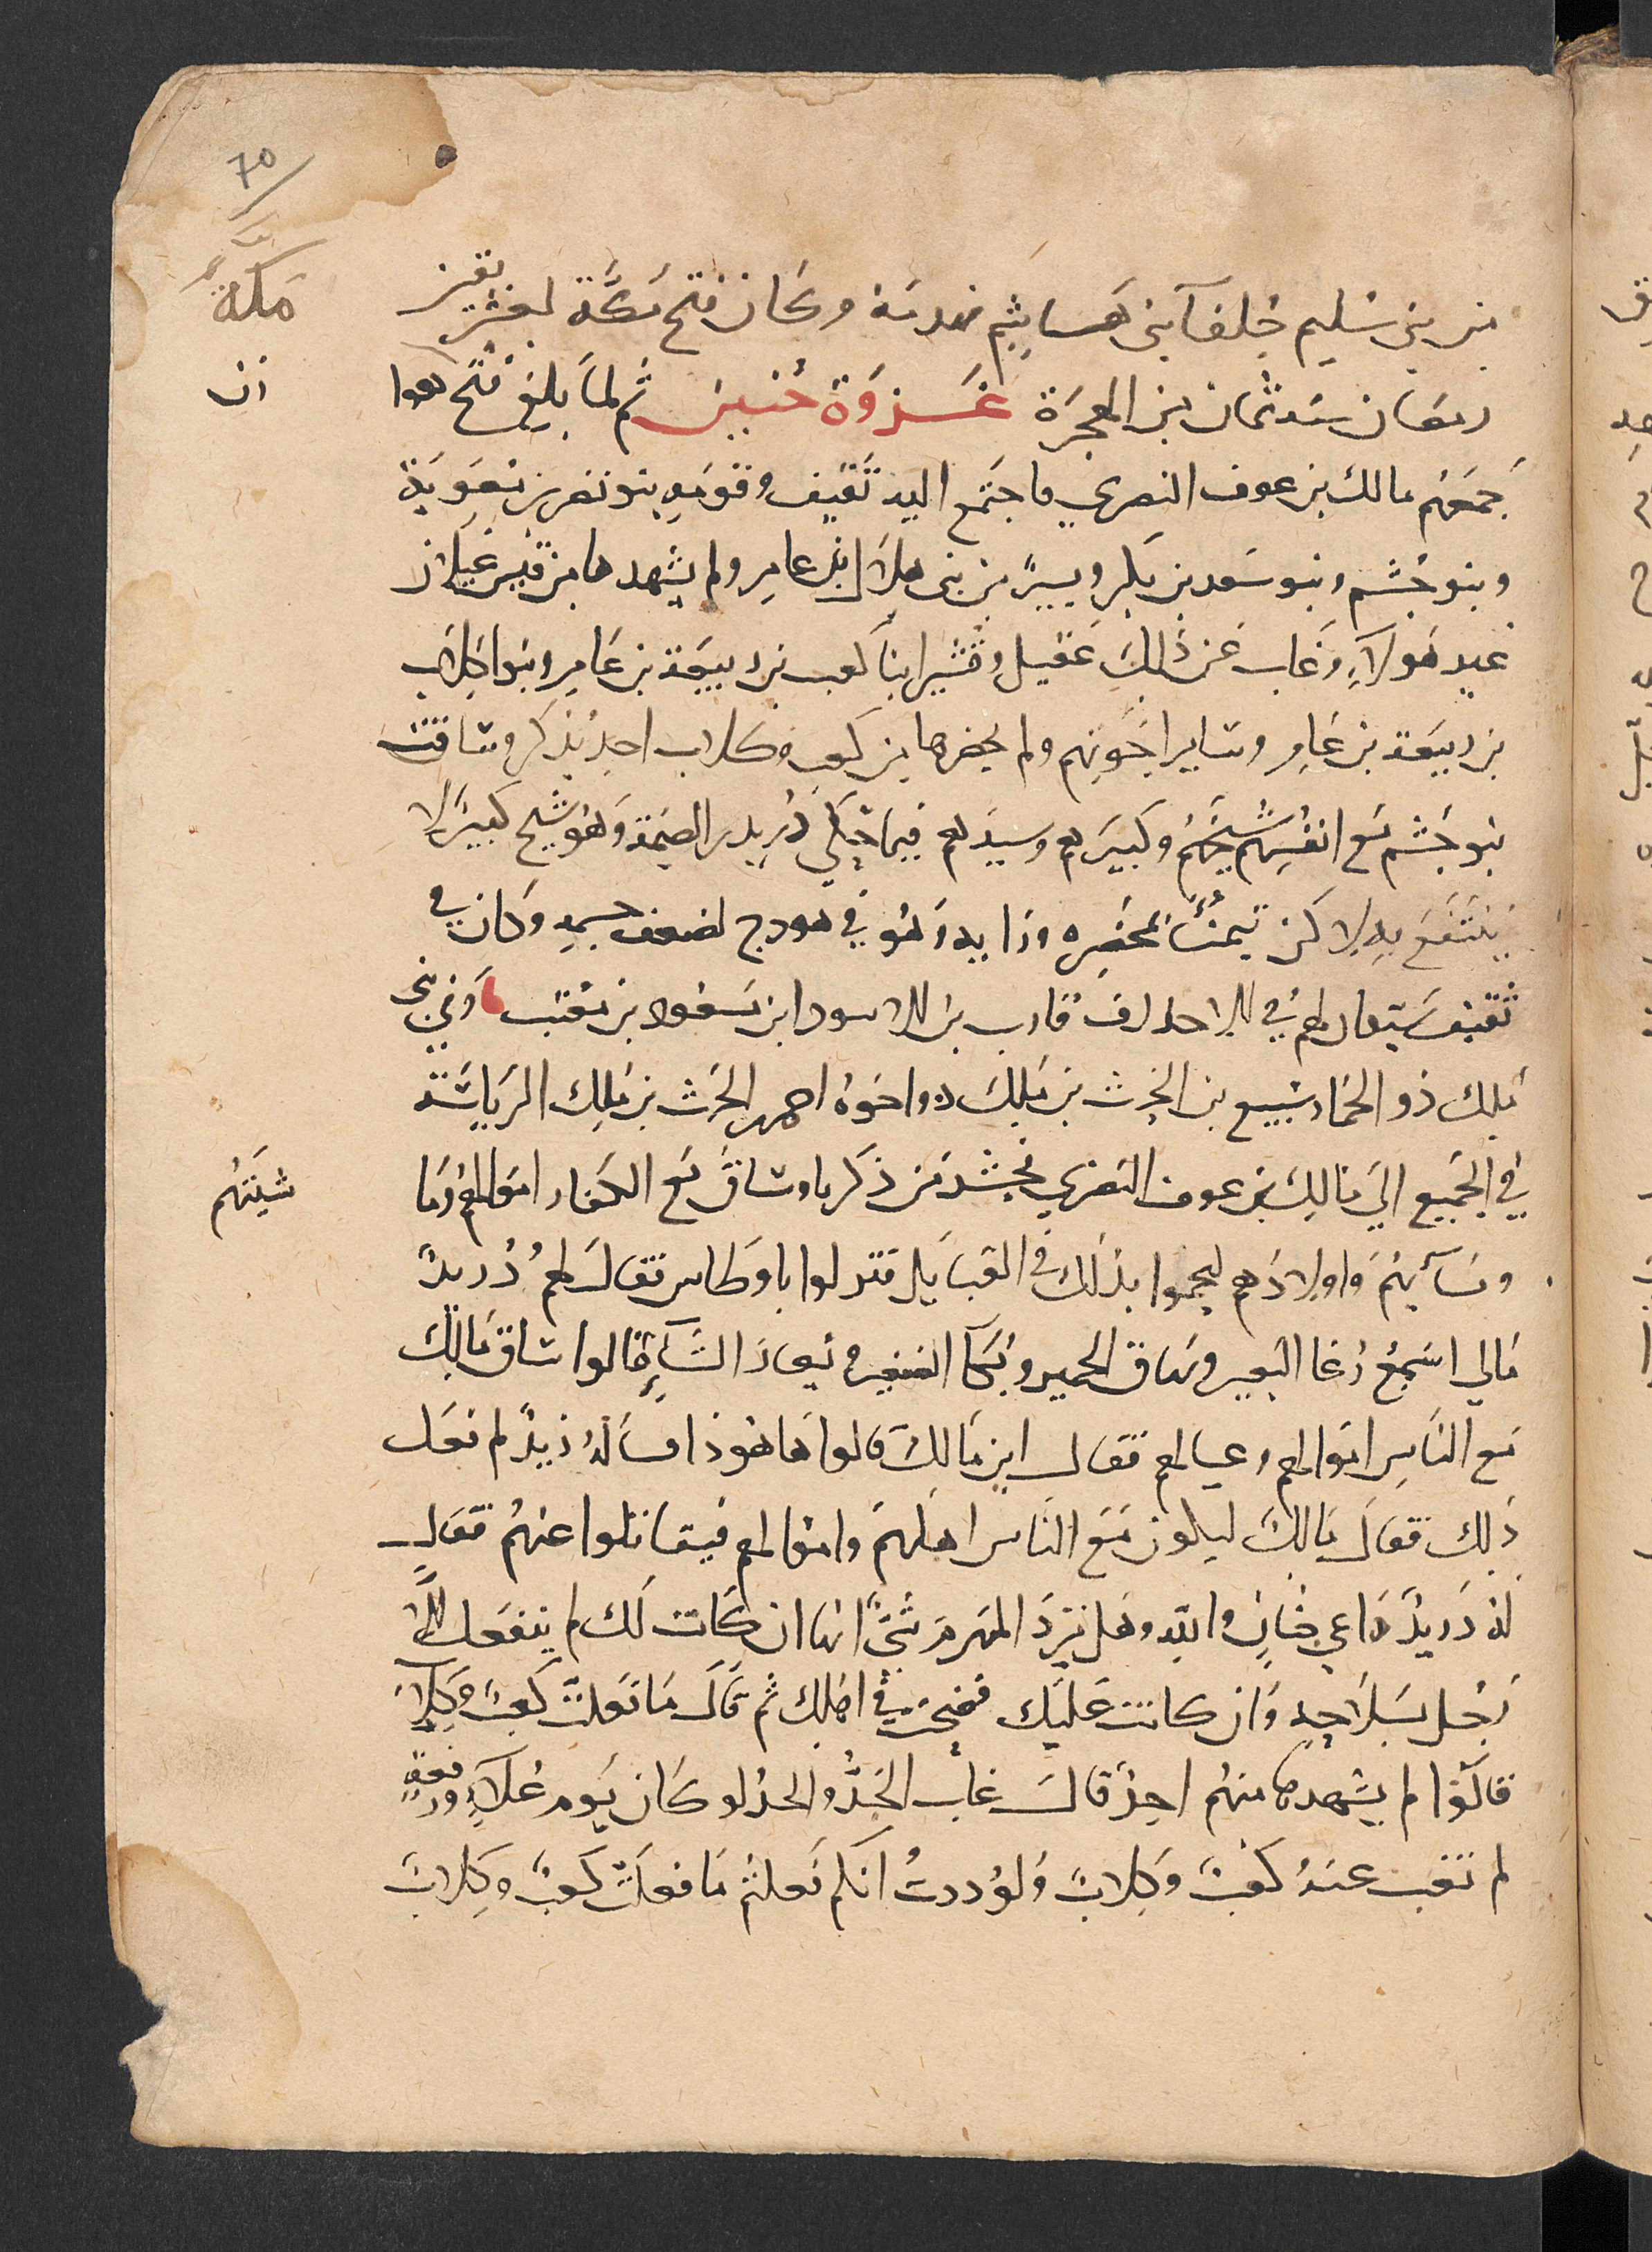 70
من بني سليم حلفا بني هاشم فهدمه وكان فتح مكة لعشر بقين
مكة
رمضان سنة ثمان من الهجرة غزوة حنين ثم لما بلغ فتح هوا
زن
جمعهم مالك بن عوف النصري فاجتمع اليه ثقيف وقومه بنو نصر بن معوية
وبنو جشم وبنو سعد بن بكر ويسير من بني هلال ابن عامر ولم يشهدها من قيس غيلان
غير هولاء وغاب عن ذالك عقيل وقشير ابنا كعب بن ربيعة بن عامر وبنوا كلاب
بن ربيعة بن عامر وساير اخوتهم ولم يحضرها من كعب وكلاب احد يذكر وساقت
بنو جشم مع انفسهم شيخهم وكبيرهم وسيدهم فيما حكي دريد بن الصمة وهو شيخ كبير لا
ينتفع به لاكن تيمنا بمحضره ورايه وهو في هودج لضعف جسمه وكان في
ثقيف سيدان لهم في الاحلاف قارب بن الاسود ابن مسعود بن معتب وفي بني
ملك ذو الخمار سبيع بن الحرث بن ملك واخوه احمر الحرث بن ملك الرياسة
في الجميع الي مالك بن عوف النصري فحشد من ذكرنا وساق مع الكفار اموالهم وما
شيتهم
ونسآيهم واولادهم ليحموا بذلك في القبايل فنزلوا باوطاس فقال لهم دريد
مالي اسمع رغا البعير ونهاق الحمير وبكا الصغير ويعار الشاء قالوا ساق مالك
مع الناس اموالهم وعيالهم فقال اين مالك قالوا ها هوذا فساله دريد لم فعل
ذلك فقال مالك ليكون مع الناس اهلهم واموالهم فيقاتلوا عنهم فقال
له دريد راعي ضان والله وهل يرد المهزم شي انها ان كانت لك لم ينفعك الا
رجل بسلاحه وان كانت عليك فضحت في اهلك ثم قال ما فعلت كعب وكلاب
قالوا لم يشهدها منهم احد قال غاب الجد والحد لو كان يوم علاء ورفعة
لم تغب عنه كعب وكلاب ولوددت انكم فعلتم ما فعلت كعب وكلاب